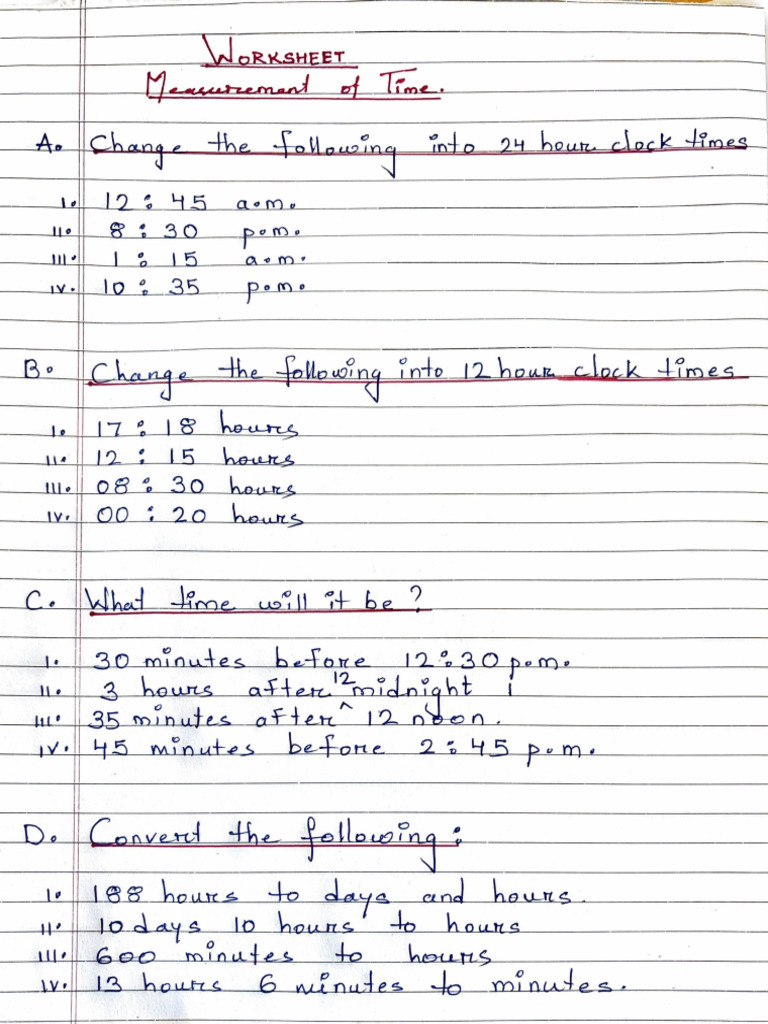 WORKSHEET
Measurement of Time.
A. Change the following into 24 hour clock times
i. 12 : 45 a.m.
ii. 8 : 30 p.m.
iii. 1 : 15 a.m.
iv. 10 : 35 p.m.
B. Change the following into 12 hour clock times
i. 17 : 18 hours
ii. 12 : 15 hours
iii. 08 : 30 hours
iv. 00 : 20 hours
C. What time will it be ?
i. 30 minutes before 12 : 30 p.m.
ii. 3 hours after 12 midnight
iii. 35 minutes after 12 noon.
iv. 45 minutes before 2 : 45 p.m.
D. Convert the following :
i. 188 hours to days and hours.
ii. 10 days 10 hours to hours
iii. 600 minutes to hours
iv. 13 hours 6 minutes to minutes.